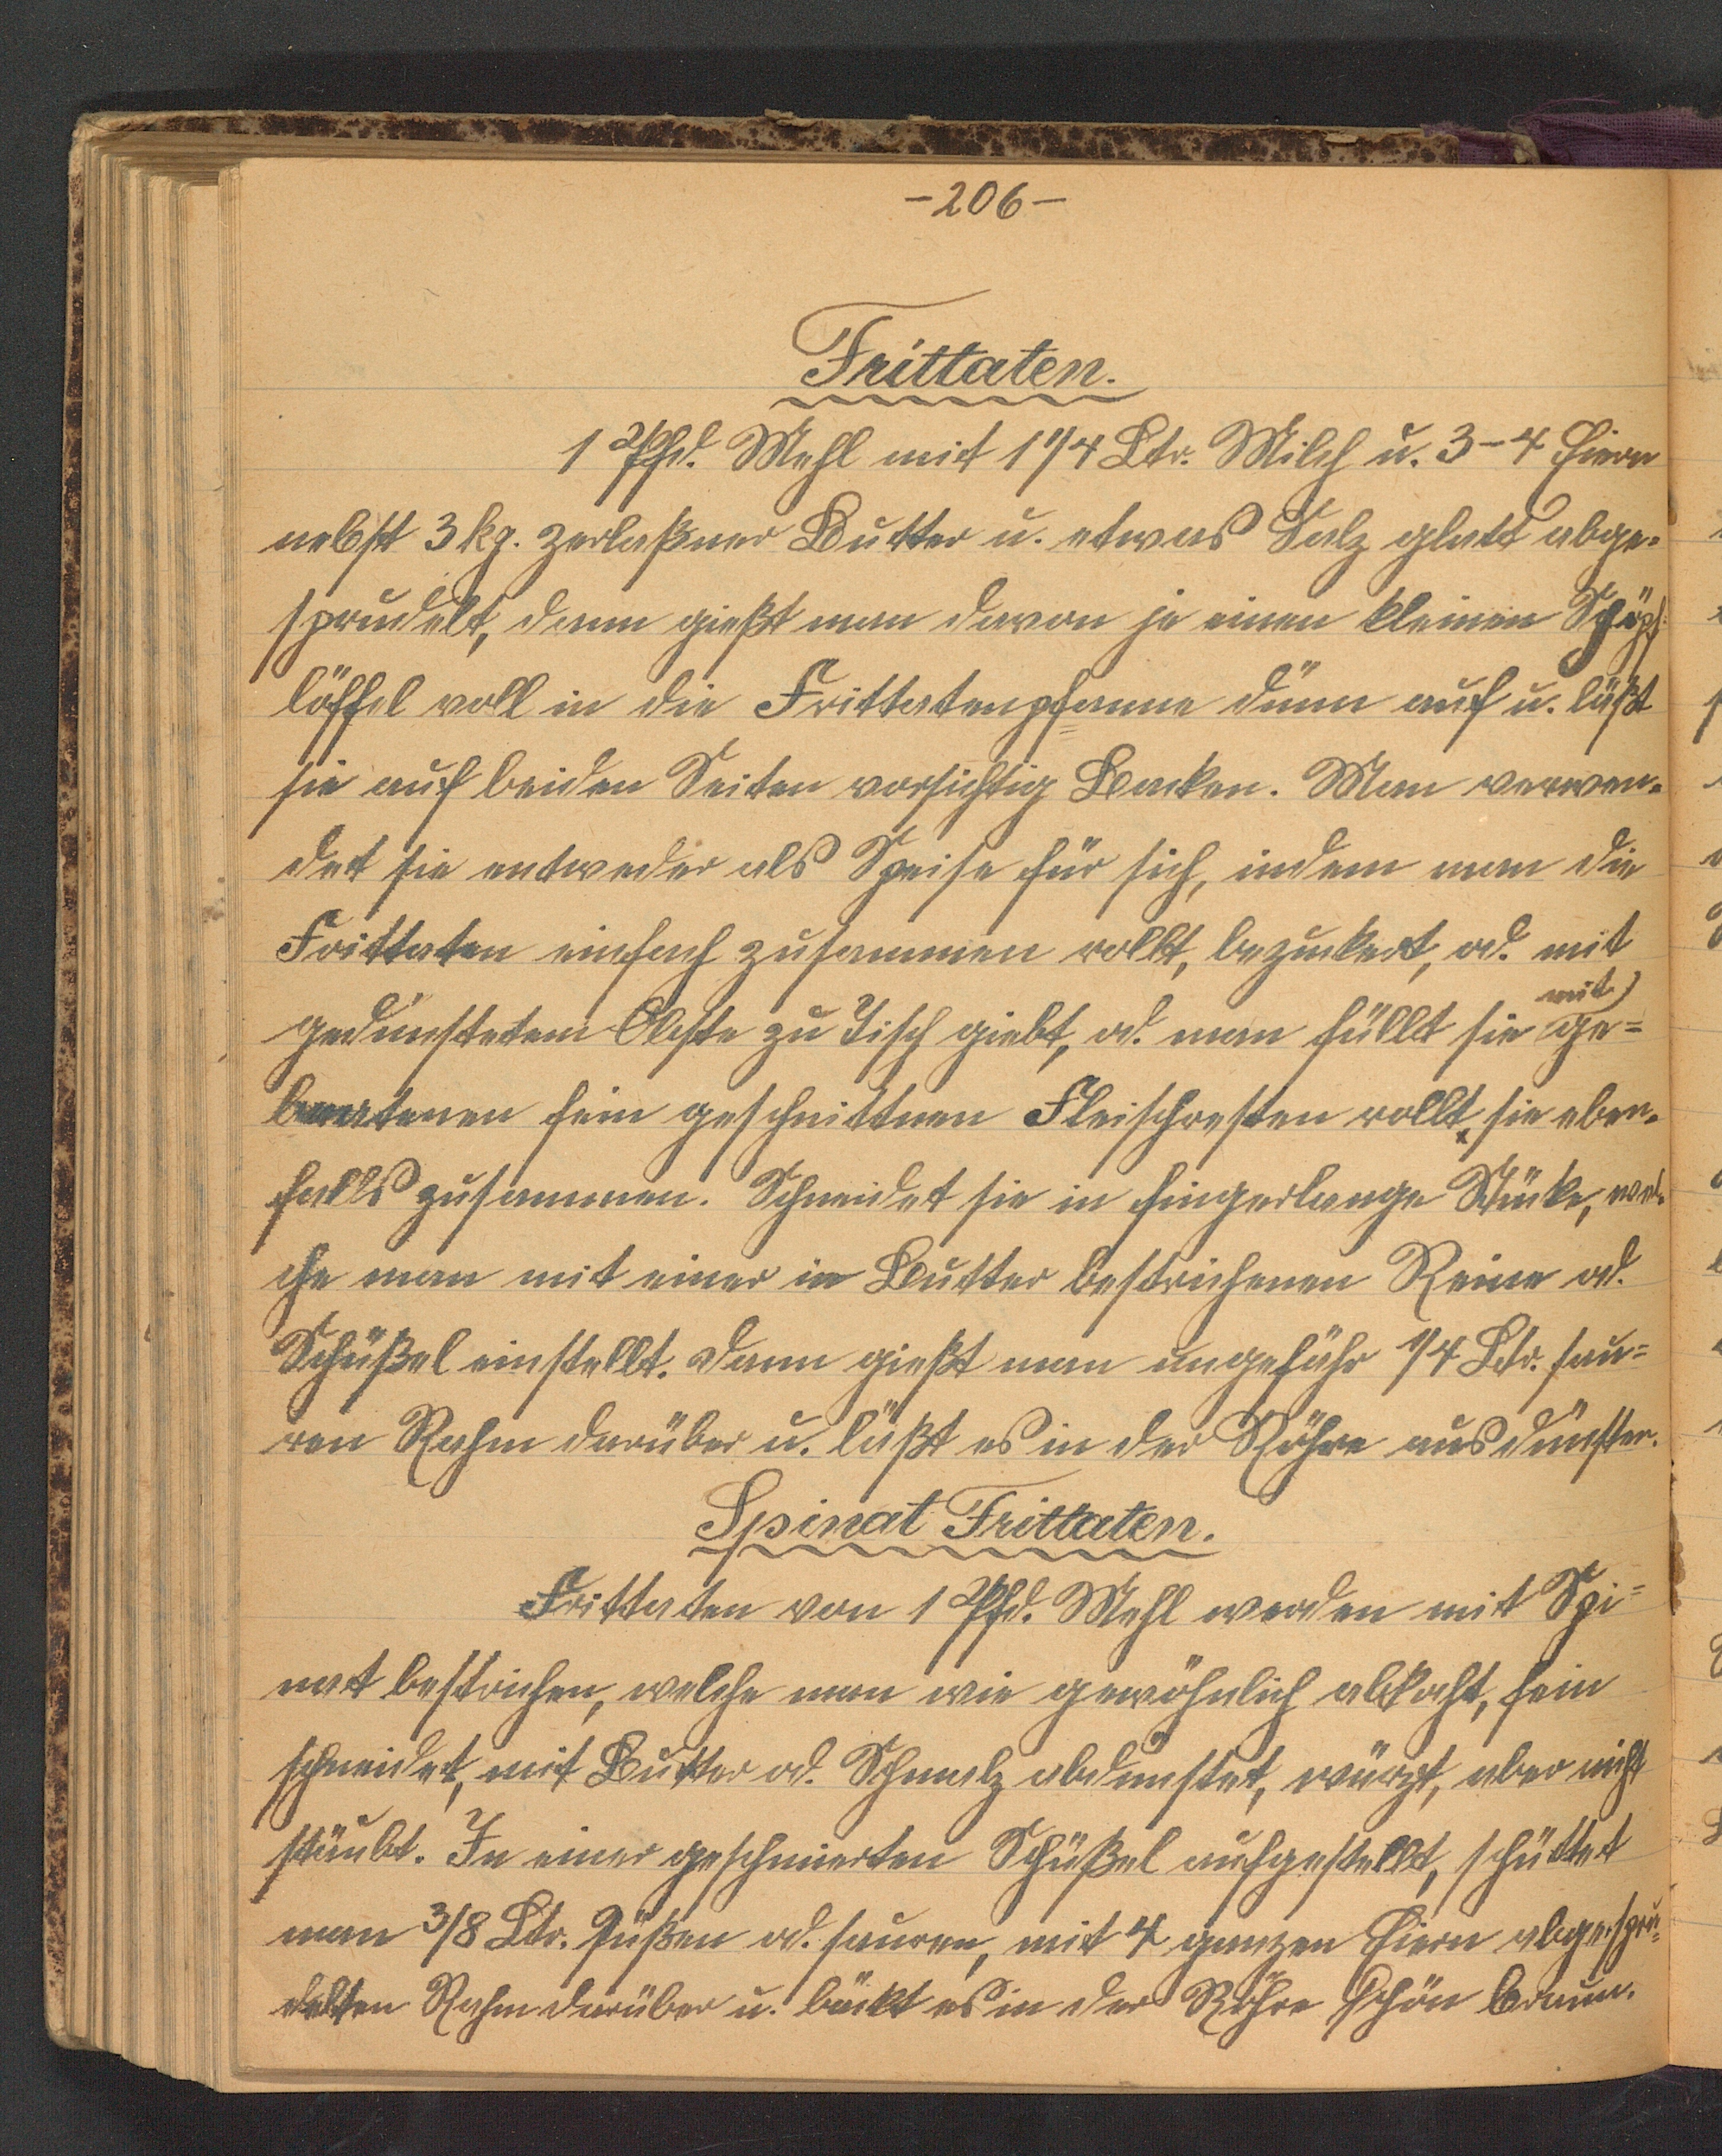 -206-
Frittaten.
1 Pfd. Mehl mit 1 1/4 Ltr. Milch u. 3-4 Eiern
nebst 3 kg. zerlaßner Butter u. etwas Salz glatt abge-
sprudelt, dann gießt man davon je einen kleinen Schöpf-
löffel voll in die Frittatenpfanne dünn auf u. läßt
sie auf beiden Seiten vorsichtig Backen. Man verwen-
det sie entweder als Speise für sich, indem man die
Frittaten einfach zusammen rollt, bezuckert, od. mit
gedünstetem Obste zu Tisch giebt, od. man füllt sie mit ge=
bratenen fein geschnittnen Fleischresten rollt sie eben-
falls zusammen. Schneidet sie in fingerlange Stücke, wel-
che man mit einer in Butter bestrichenen Reine od.
Schüßel einstellt. dann gießt man ungefähr 1/4 Ltr. sau=
ren Rahm darüber u. läßt es in der Röhre ausdünsten.
Spinat Frittaten.
Frittaten von 1 Pfd. Mehl werden mit Spi=
nat bestrichen, welche man wie gewöhnlich abkocht, fein
schneidet, mit Butter od. Schmalz abdünstet, würzt, aber nicht
stäubt. In einer geschmierten Schüßel aufgestellt, schüttet
man 3/8 Ltr. süßen od. sauren, mit 4 ganzen Eiern abgespru=
delten Rahm darüber u. bäckt es in der Röhre schön braun.